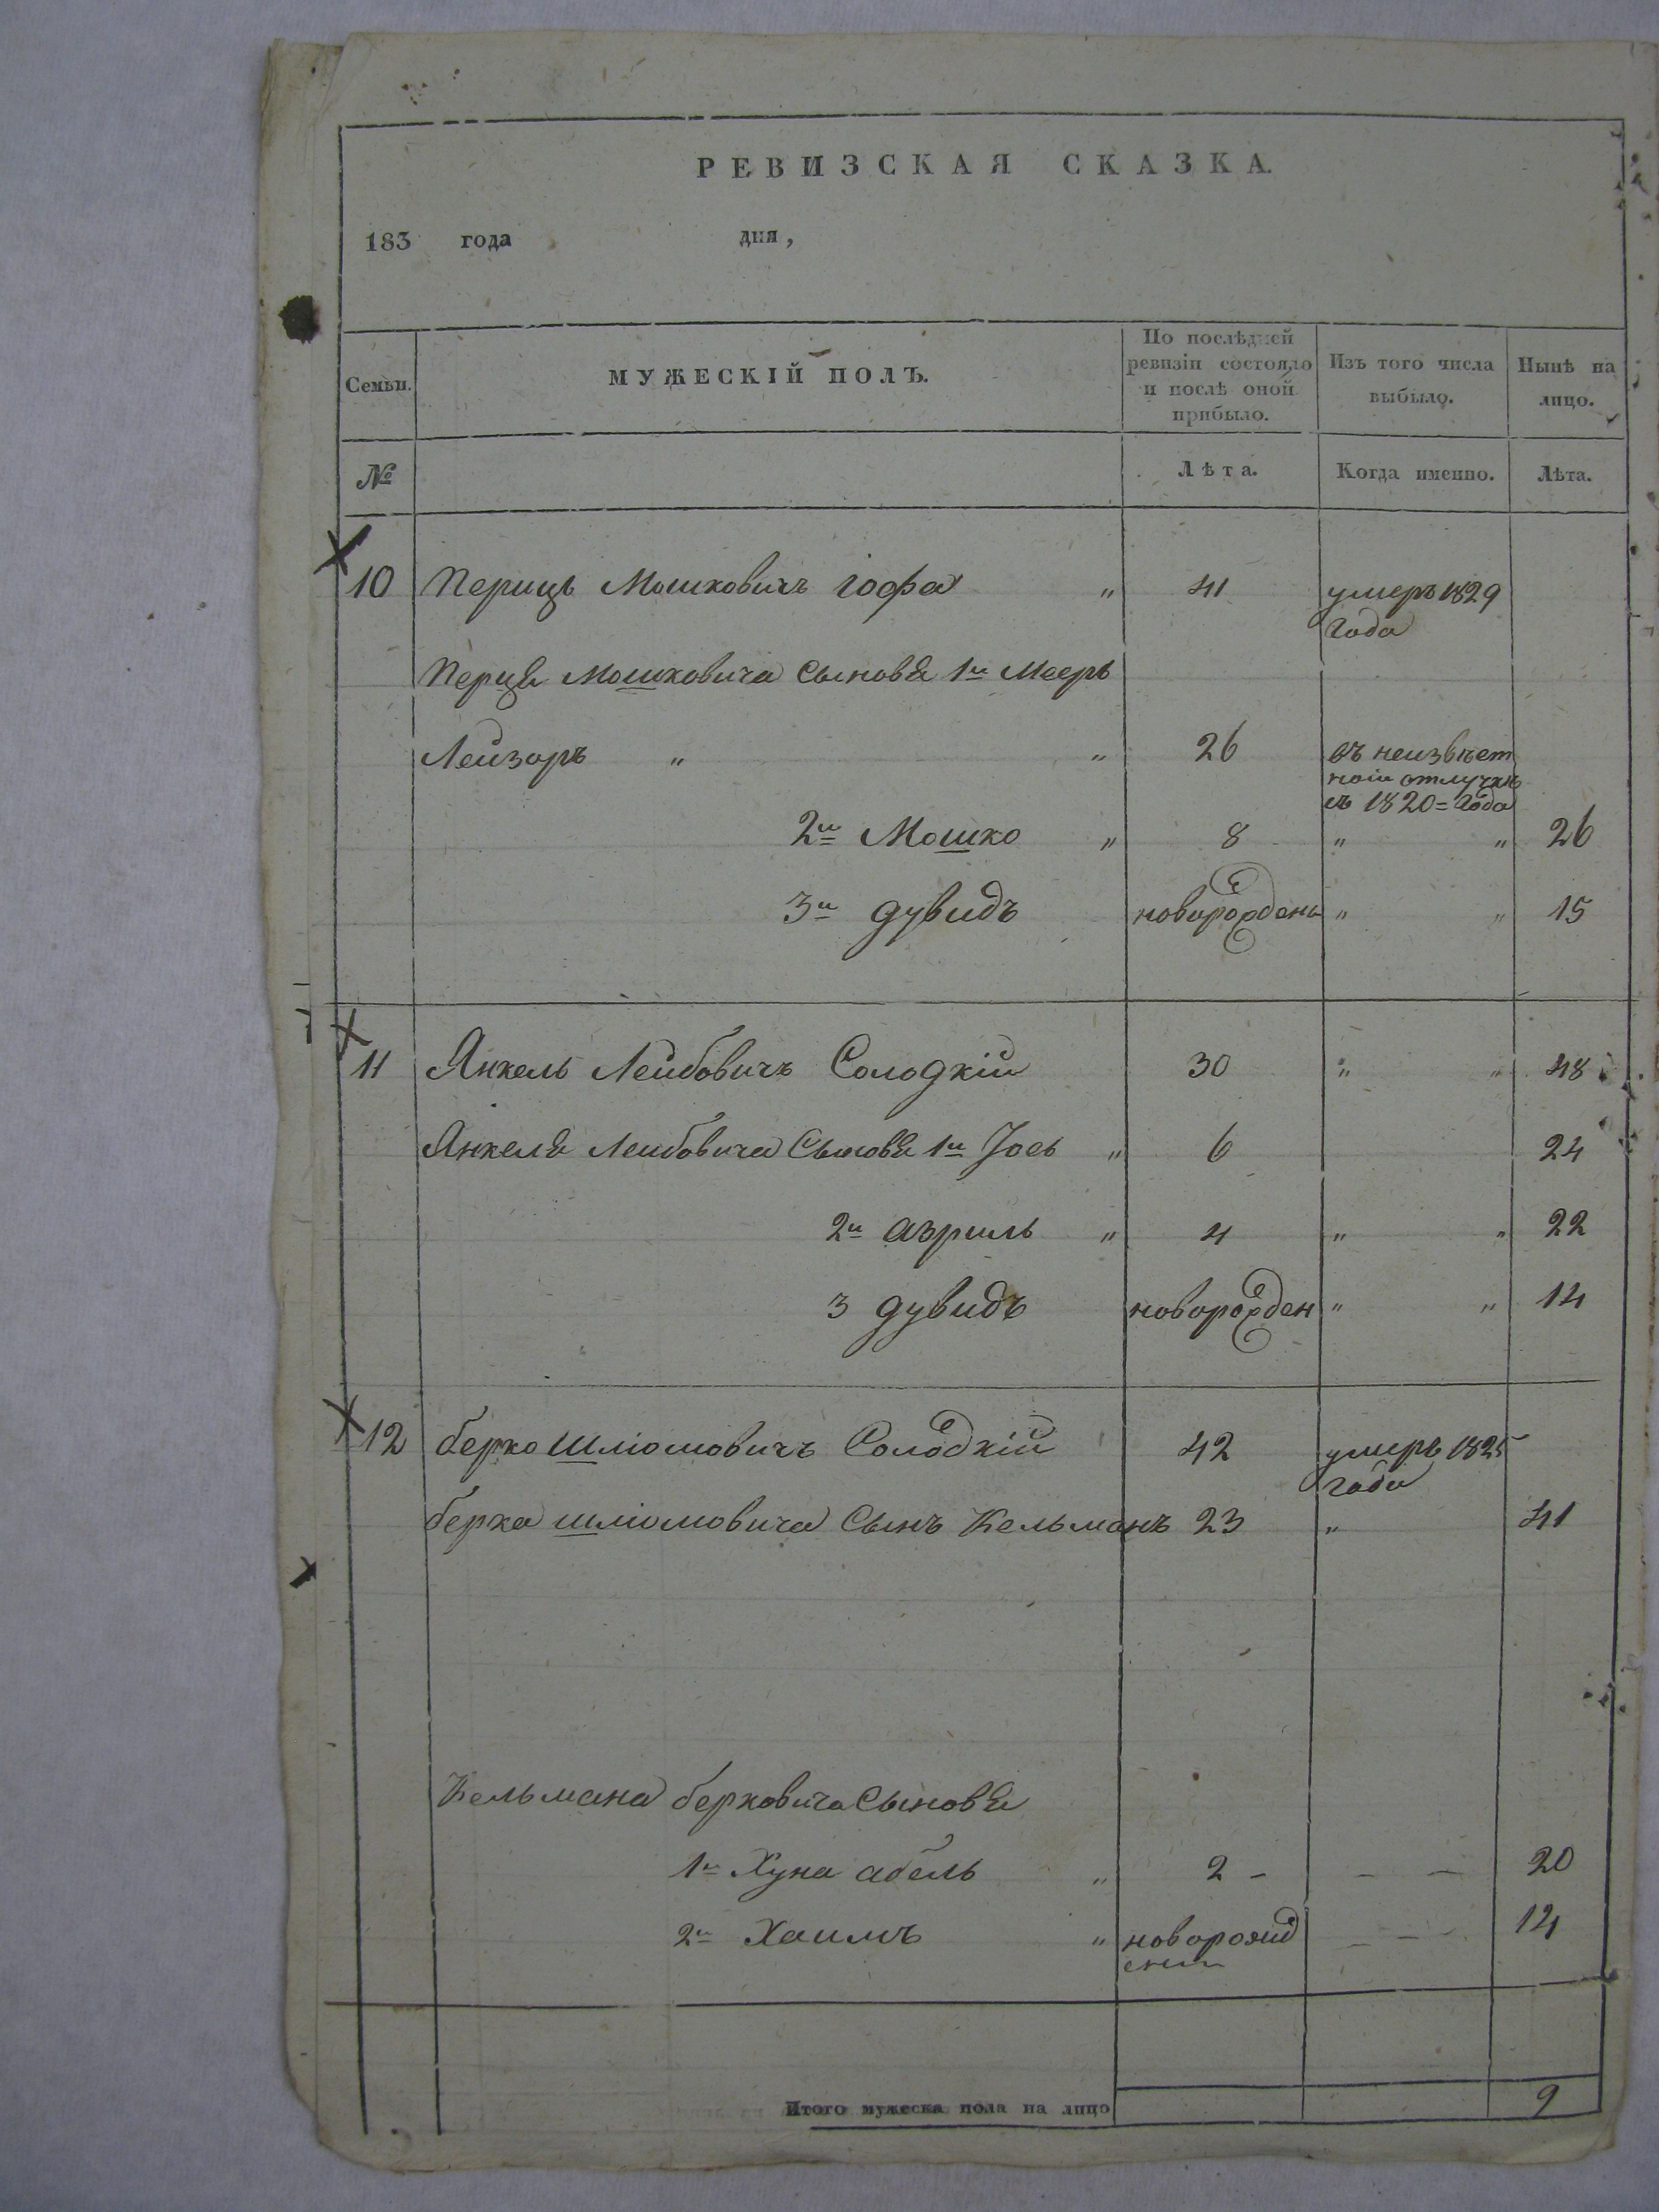 РЕВИЗСКАЯ СКАЗКА.
183 года дня,
Семьи. МУЖЕСКІЙ ПОЛЪ. По послѣдней ревизіи состояло и послѣ оной прибыло. Изъ того числа выбыло. Нынѣ на лицо.
№ Лѣта. Когда именно. Лѣта.
10 Перицъ Мошковичъ гофа " 41 умеръ 1829
года
Перца Мошковича Сыновя 1й Мееръ
Лейзоръ " " 26 въ неизвѣст
ной отлучкѣ
съ 1820= года
2й Мошко " 8 " " 26
3й дувидъ новорожденъ " " 15
11 Янкель Лейбовичъ Солодкій 30 " " 48
Янкеля Лейбовича Сыновя 1й Іось " 6 24
2й азриль " 4 " " 22
3 дувидъ новорожден " " 14
12 берко Шліомовичъ Солодкій 42 умеръ 1825
года
берка шліомовича Сынъ Кельманъ 23 " 41
Кельмана берковича Сыновя
1й Хуна абель " 2 – – – 20
2й Хаимъ " новорожд – – – 14
Итого мужеска пола на лицо 9